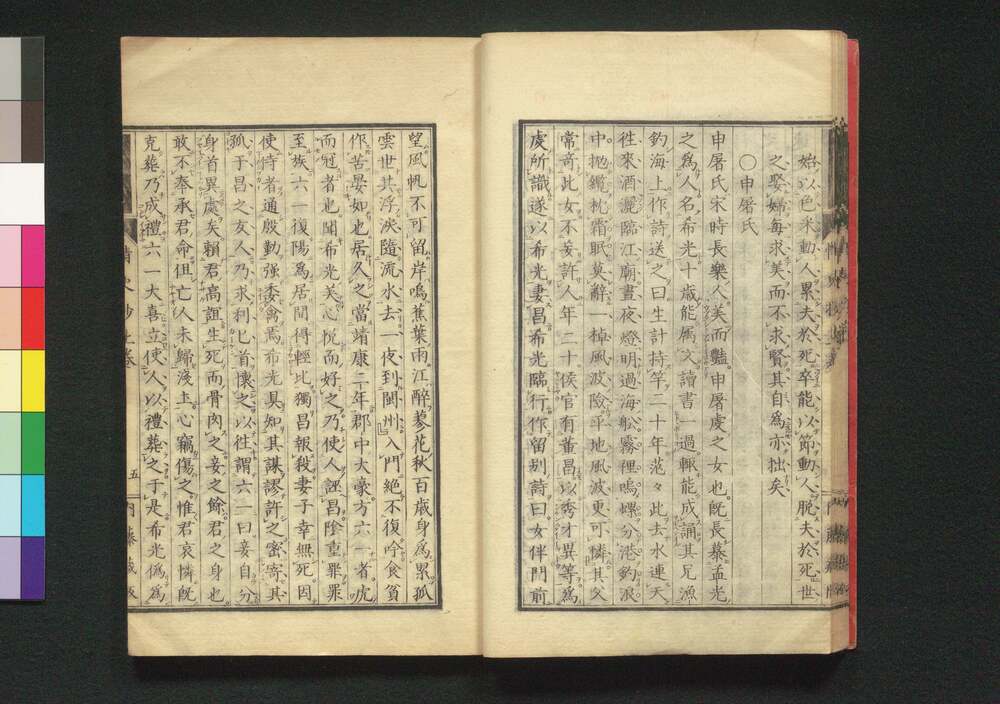 始以色米動人累夫於死卒能以節動人脫夫於死世
之娶婦每求美而不求賢其自為亦拙矣
〇申屠氏
申屠氏宋時長樂人美而豔申屠虔之女也既長慕孟光
之為人名希光十歲能屬文讀書一過輒能成誦其兄漁
釣海上作詩送之曰生計持竿二十年茫々此去水連天
往來酒灑臨江廟晝夜燈明過海船霧裡鳴螺分港釣浪
中拋纜枕霜眠莫辭一棹風波險平地風波更可憐其父
常奇此女不妄許人年二十侯官有董昌以秀才異等為
虔所識遂以希光妻昌希光臨行作留別詩曰女伴門前
望風帆不可留岸鳴蕉葉雨江醉蓼花秋百歲身為累孤
雲世共浮淚隨流水去一夜到閩州入門絕不復吟食貧
作苦晏如也居久之當靖康二年郡中大豪方六一者虎
而冠者也聞希光美心悅而好之乃使人誣昌陰重罪罪
至族六一復陽為居間得輕比獨昌報殺妻子幸無死因
使侍者通殷勤強委禽焉希光具知其謀謬許之密寄其
孤于昌之友人乃求利匕首懷之以往謂六一曰妾自分
身首異處矣賴君高誼生死而骨肉之妾之餘君之身也
敢不奉承君命但亡人未歸淺土心竊傷之惟君哀憐既
克葬乃成禮六一大喜立使人以禮葬之于是希光偽為
情史抄上卷
五